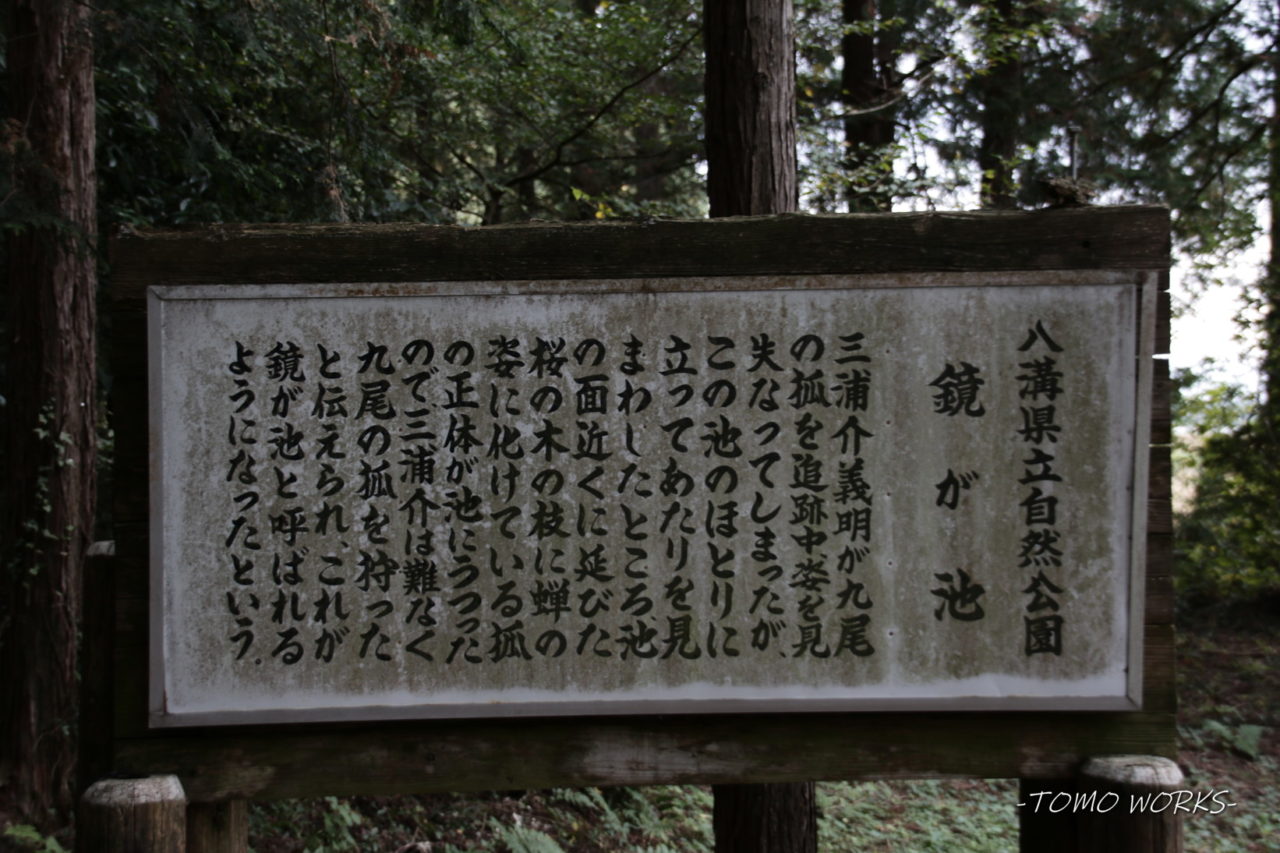 八溝県立自然公園
鏡が池
三浦介義明が九尾
の狐を追跡中、姿を見
失なってしまったが、
この池のほとりに
立ってあたりを見
まわしたところ、池
の面近くに延びた
桜の木の枝に蝉の
姿に化けている狐
の正体が池にうつった
ので三浦介は難なく
九尾の狐を狩った
と伝えられ、これが
鏡が池と呼ばれる
ようになったという.
-TOMO WORKS-